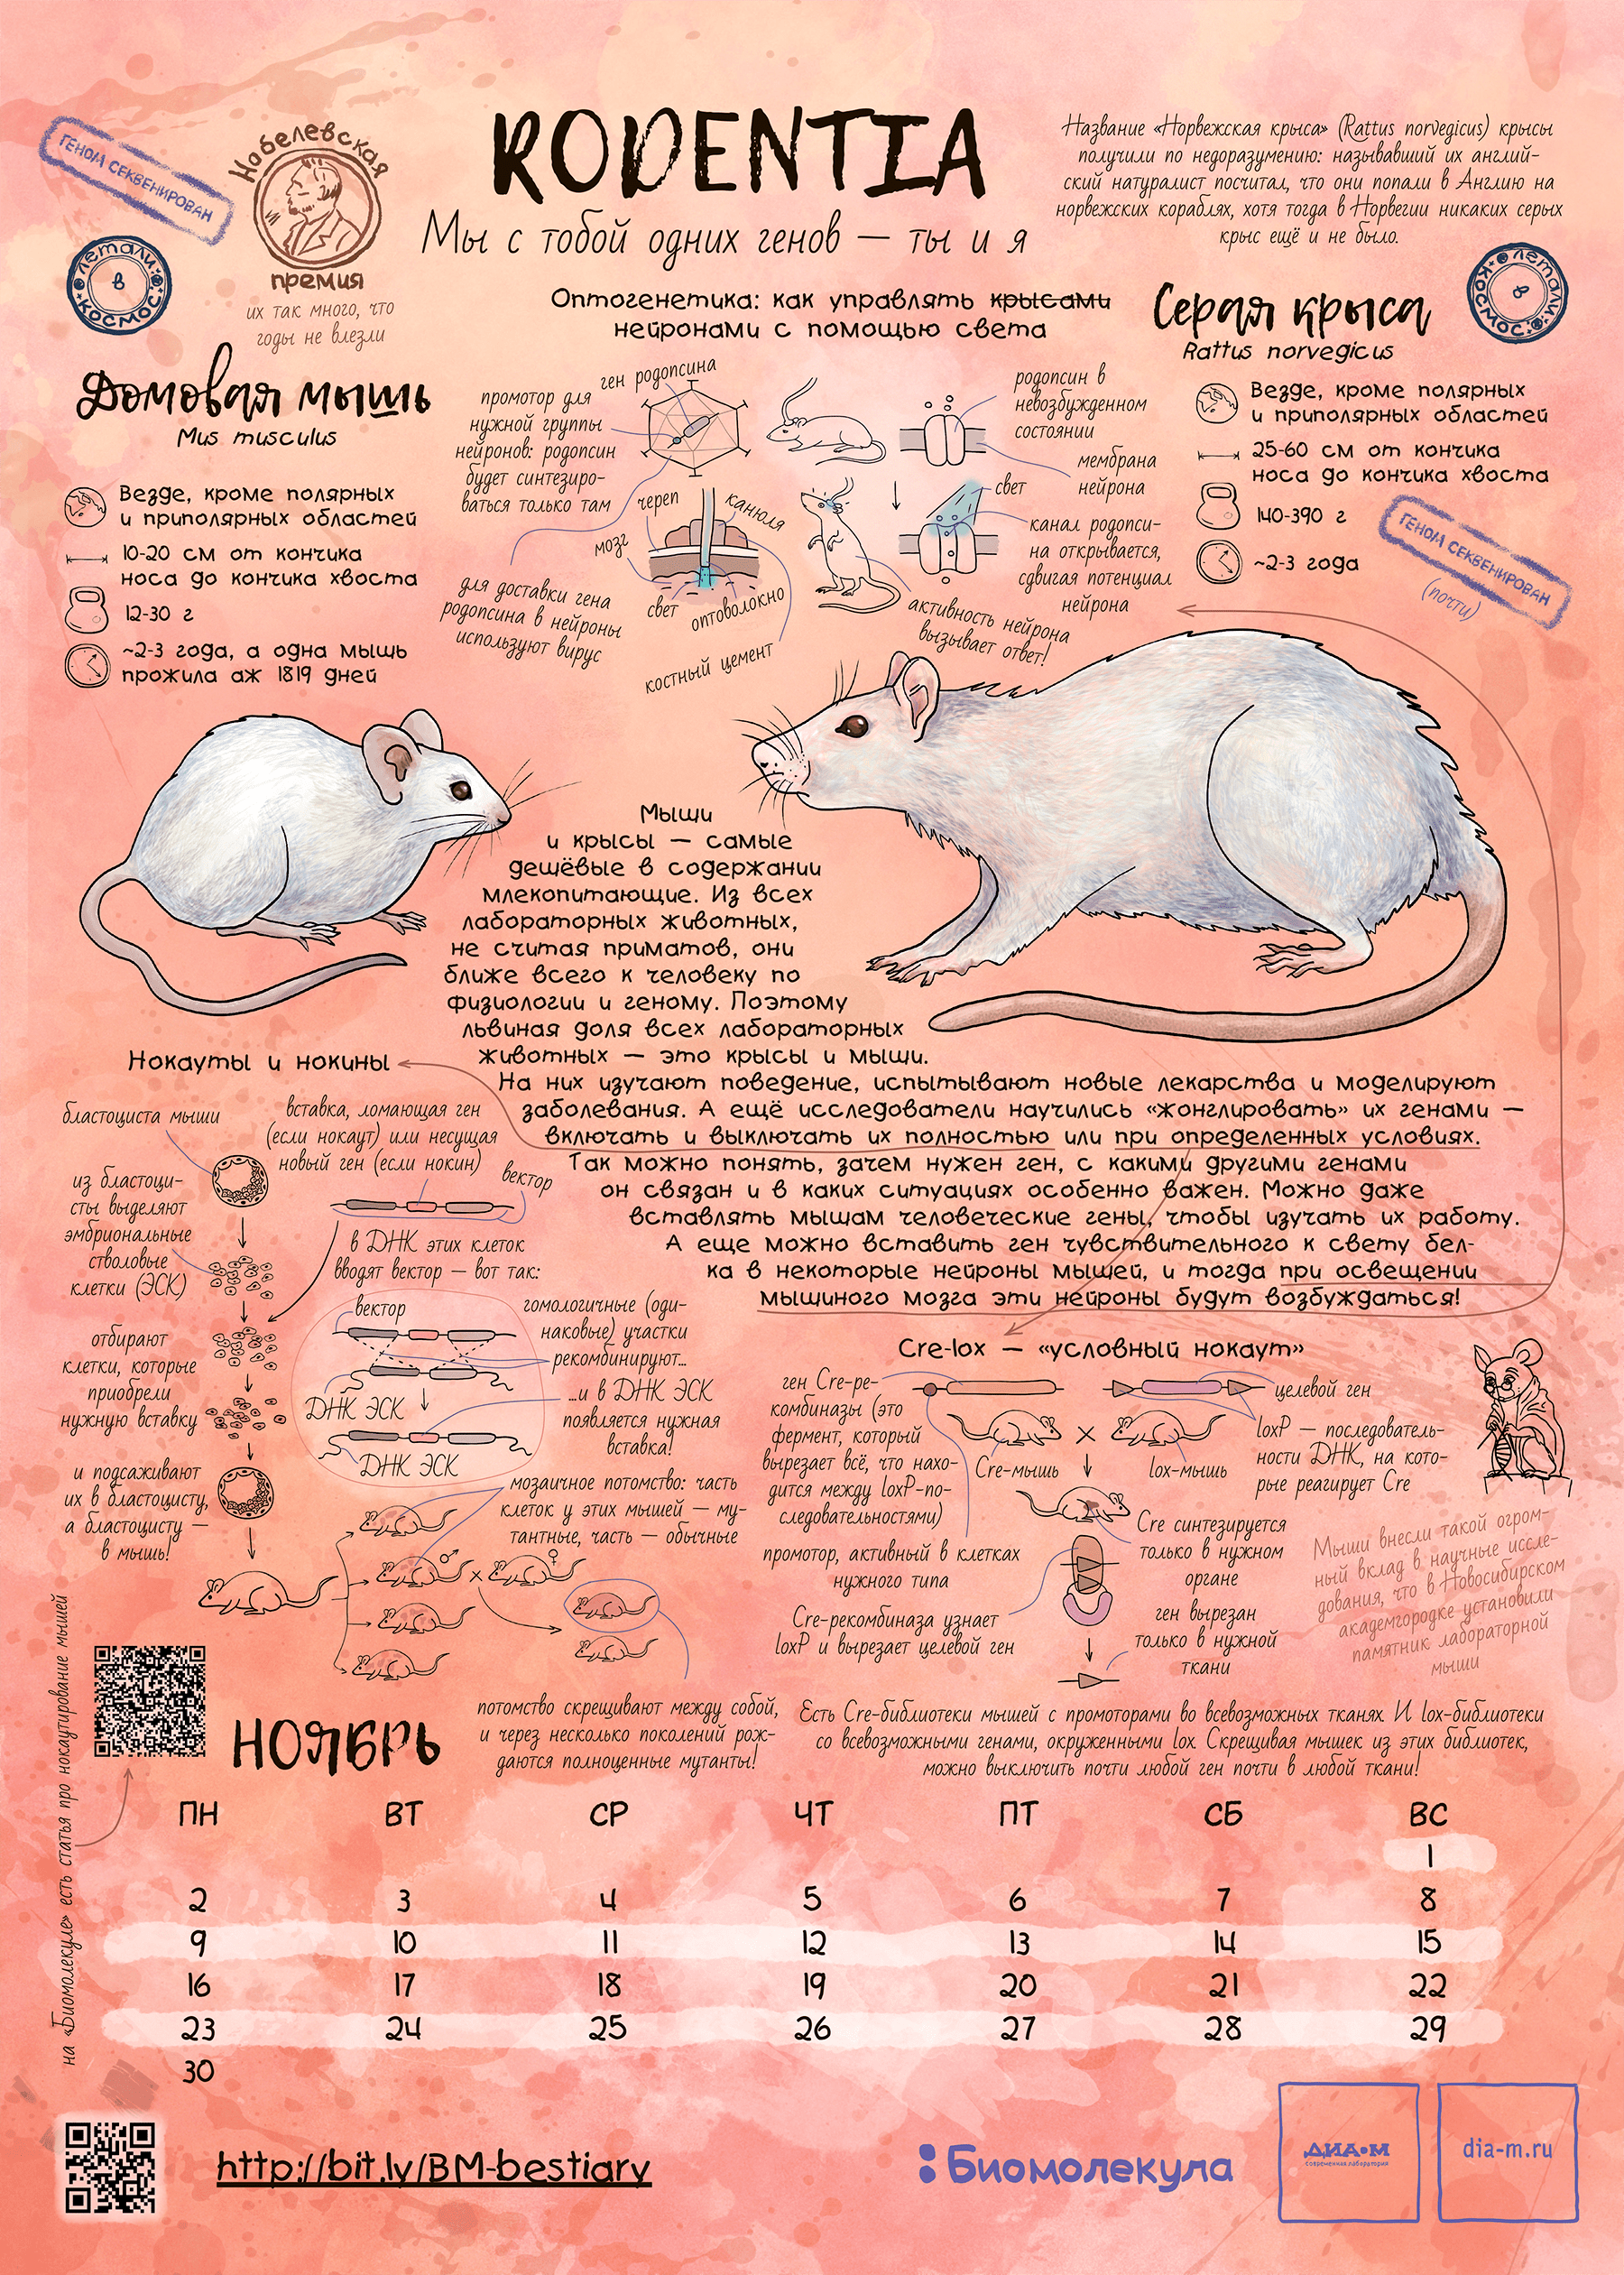 RODENTIA
Мы с тобой одних генов — ты и я
ГЕНОМ СЕКВЕНИРОВАН
Нобелевская
премия
их так много, что
годы не влезли
летали
в
космос
Название «Норвежская крыса» (Rattus norvegicus) крысы
получили по недоразумению: называвший их англий-
ский натуралист посчитал, что они попали в Англию на
норвежских кораблях, хотя тогда в Норвегии никаких серых
крыс ещё и не было.
летали
в
космос
Домовая мышь
Mus musculus
Везде, кроме полярных
и приполярных областей
10-20 см от кончика
носа до кончика хвоста
12-30 г
~2-3 года, а одна мышь
прожила аж 1819 дней
Оптогенетика: как управлять крысами
нейронами с помощью света
ген родопсина
промотор для
нужной группы
нейронов: родопсин
будет синтезиро-
ваться только там
для доставки гена
родопсина в нейроны
используют вирус
череп
канюля
мозг
свет
оптоволокно
костный цемент
родопсин в
невозбужденном
состоянии
мембрана
нейрона
свет
канал родопси-
на открывается,
сдвигая потенциал
нейрона
активность нейрона
вызывает ответ!
Серая крыса
Rattus norvegicus
Везде, кроме полярных
и приполярных областей
25-60 см от кончика
носа до кончика хвоста
140-390 г
~2-3 года
ГЕНОМ СЕКВЕНИРОВАН
(почти)
Мыши
и крысы — самые
дешёвые в содержании
млекопитающие. Из всех
лабораторных животных,
не считая приматов, они
ближе всего к человеку по
физиологии и геному. Поэтому
львиная доля всех лабораторных
животных — это крысы и мыши.
На них изучают поведение, испытывают новые лекарства и моделируют
заболевания. А ещё исследователи научились «жонглировать» их генами —
включать и выключать их полностью или при определенных условиях.
Так можно понять, зачем нужен ген, с какими другими генами
он связан и в каких ситуациях особенно важен. Можно даже
вставлять мышам человеческие гены, чтобы изучать их работу.
А еще можно вставить ген чувствительного к свету бел-
ка в некоторые нейроны мышей, и тогда при освещении
мышиного мозга эти нейроны будут возбуждаться!
Нокауты и нокины
бластоциста мыши
вставка, ломающая ген
(если нокаут) или несущая
новый ген (если нокин)
вектор
из бластоци-
сты выделяют
эмбриональные
стволовые
клетки (ЭСК)
в ДНК этих клеток
вводят вектор — вот так:
вектор
гомологичные (оди-
наковые) участки
рекомбинируют...
ДНК ЭСК
...и в ДНК ЭСК
появляется нужная
вставка!
ДНК ЭСК
отбирают
клетки, которые
приобрели
нужную вставку
и подсаживают
их в бластоцисту,
а бластоцисту —
в мышь!
мозаичное потомство: часть
клеток у этих мышей — му-
тантные, часть — обычные
♂ × ♀
потомство скрещивают между собой,
и через несколько поколений рож-
даются полноценные мутанты!
Cre-lox — «условный нокаут»
ген Cre-ре-
комбиназы (это
фермент, который
вырезает всё, что нахо-
дится между loxP-по-
следовательностями)
целевой ген
loxP — последователь-
ности ДНК, на кото-
рые реагирует Cre
Cre-мышь
×
lox-мышь
промотор, активный в клетках
нужного типа
Cre синтезируется
только в нужном
органе
Cre-рекомбиназа узнает
loxP и вырезает целевой ген
ген вырезан
только в нужной
ткани
Мыши внесли такой огром-
ный вклад в научные иссле-
дования, что в Новосибирском
академгородке установили
памятник лабораторной
мыши
Есть Cre-библиотеки мышей с промоторами во всевозможных тканях. И lox-библиотеки
со всевозможными генами, окруженными lox. Скрещивая мышек из этих библиотек,
можно выключить почти любой ген почти в любой ткани!
на «Биомолекуле» есть статья про нокаутирование мышей
НОЯБРЬ
ПН ВТ СР ЧТ ПТ СБ ВС
1
2 3 4 5 6 7 8
9 10 11 12 13 14 15
16 17 18 19 20 21 22
23 24 25 26 27 28 29
30
http://bit.ly/BM-bestiary
Биомолекула
ДИА•М
современная лаборатория
dia-m.ru